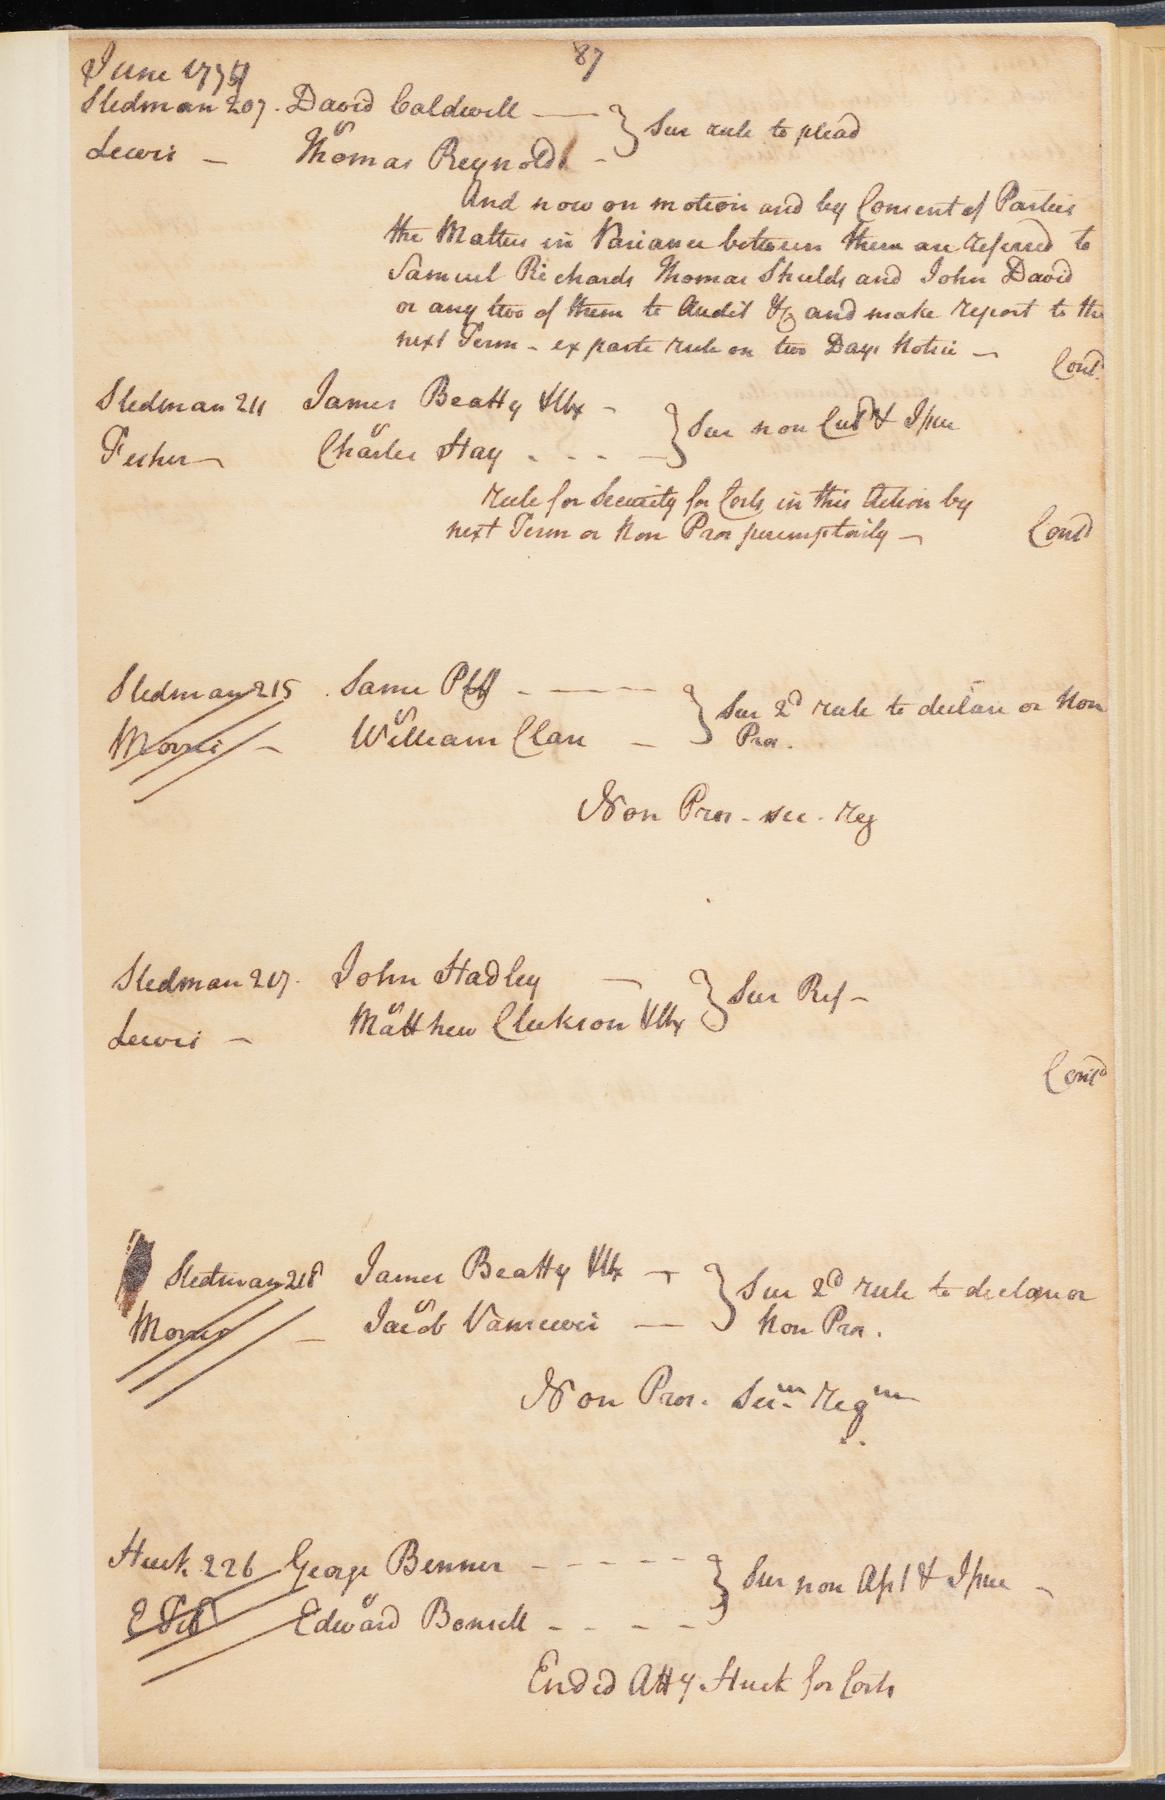 87
June 1774
Sledman 207. David Caldwell — } Sur rule to plead
vs
Lewis — Thomas Reynolds -
And now on motion and by Consent of Parties
the Matters in Variance between them are referred to
Samuel Richards Thomas Shields and John David
or any two of them to Audit &c and make report to the
next Term - ex parte rule on two Days Notice —
Contd.
Sledman 211 James Beatty & Ux - } Sur non Cul & Issue
vs
Fisher — Charles Hay . - - —
rule for Security for Costs in this Action by
next Term or Non Pros peremptorily —
Contd
Sledman 215 . Same Plff - - — — } Sur 2d rule to declare or Non
Pros.
vs
Morris — William Clan —
Non Pros - sec. reg
Sledman 217. John Hadley — } Sur Ref -
vs
Lewis — Matthew Clarkson & Ux
Contd
Sledman 218 James Beatty & Ux — } Sur 2d rule to declare or
Non Pros.
vs
Morris — Jacob Vansciver —
Non Pros. Secm Regm
Huck 226 George Benner - - - - - } Sur non Aspt & Issue -
vs
E Til Edward Bonsell - - - -
Ended Atty Huck for Costs